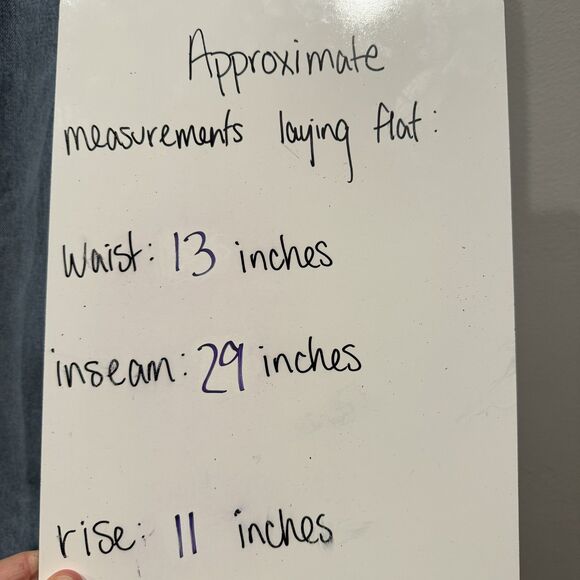 Approximate
measurements laying flat:
Waist: 13 inches
inseam: 29 inches
rise: 11 inches